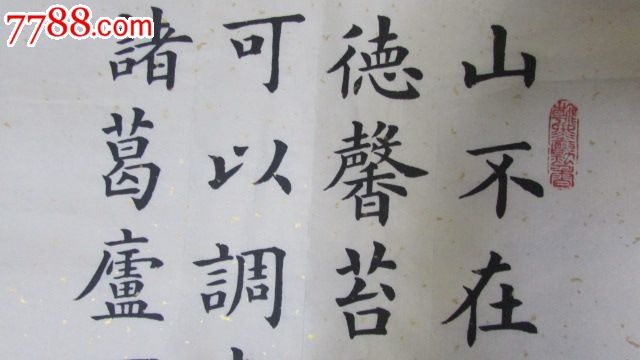 7788.com
山不在
德馨苔
可以調
諸葛廬